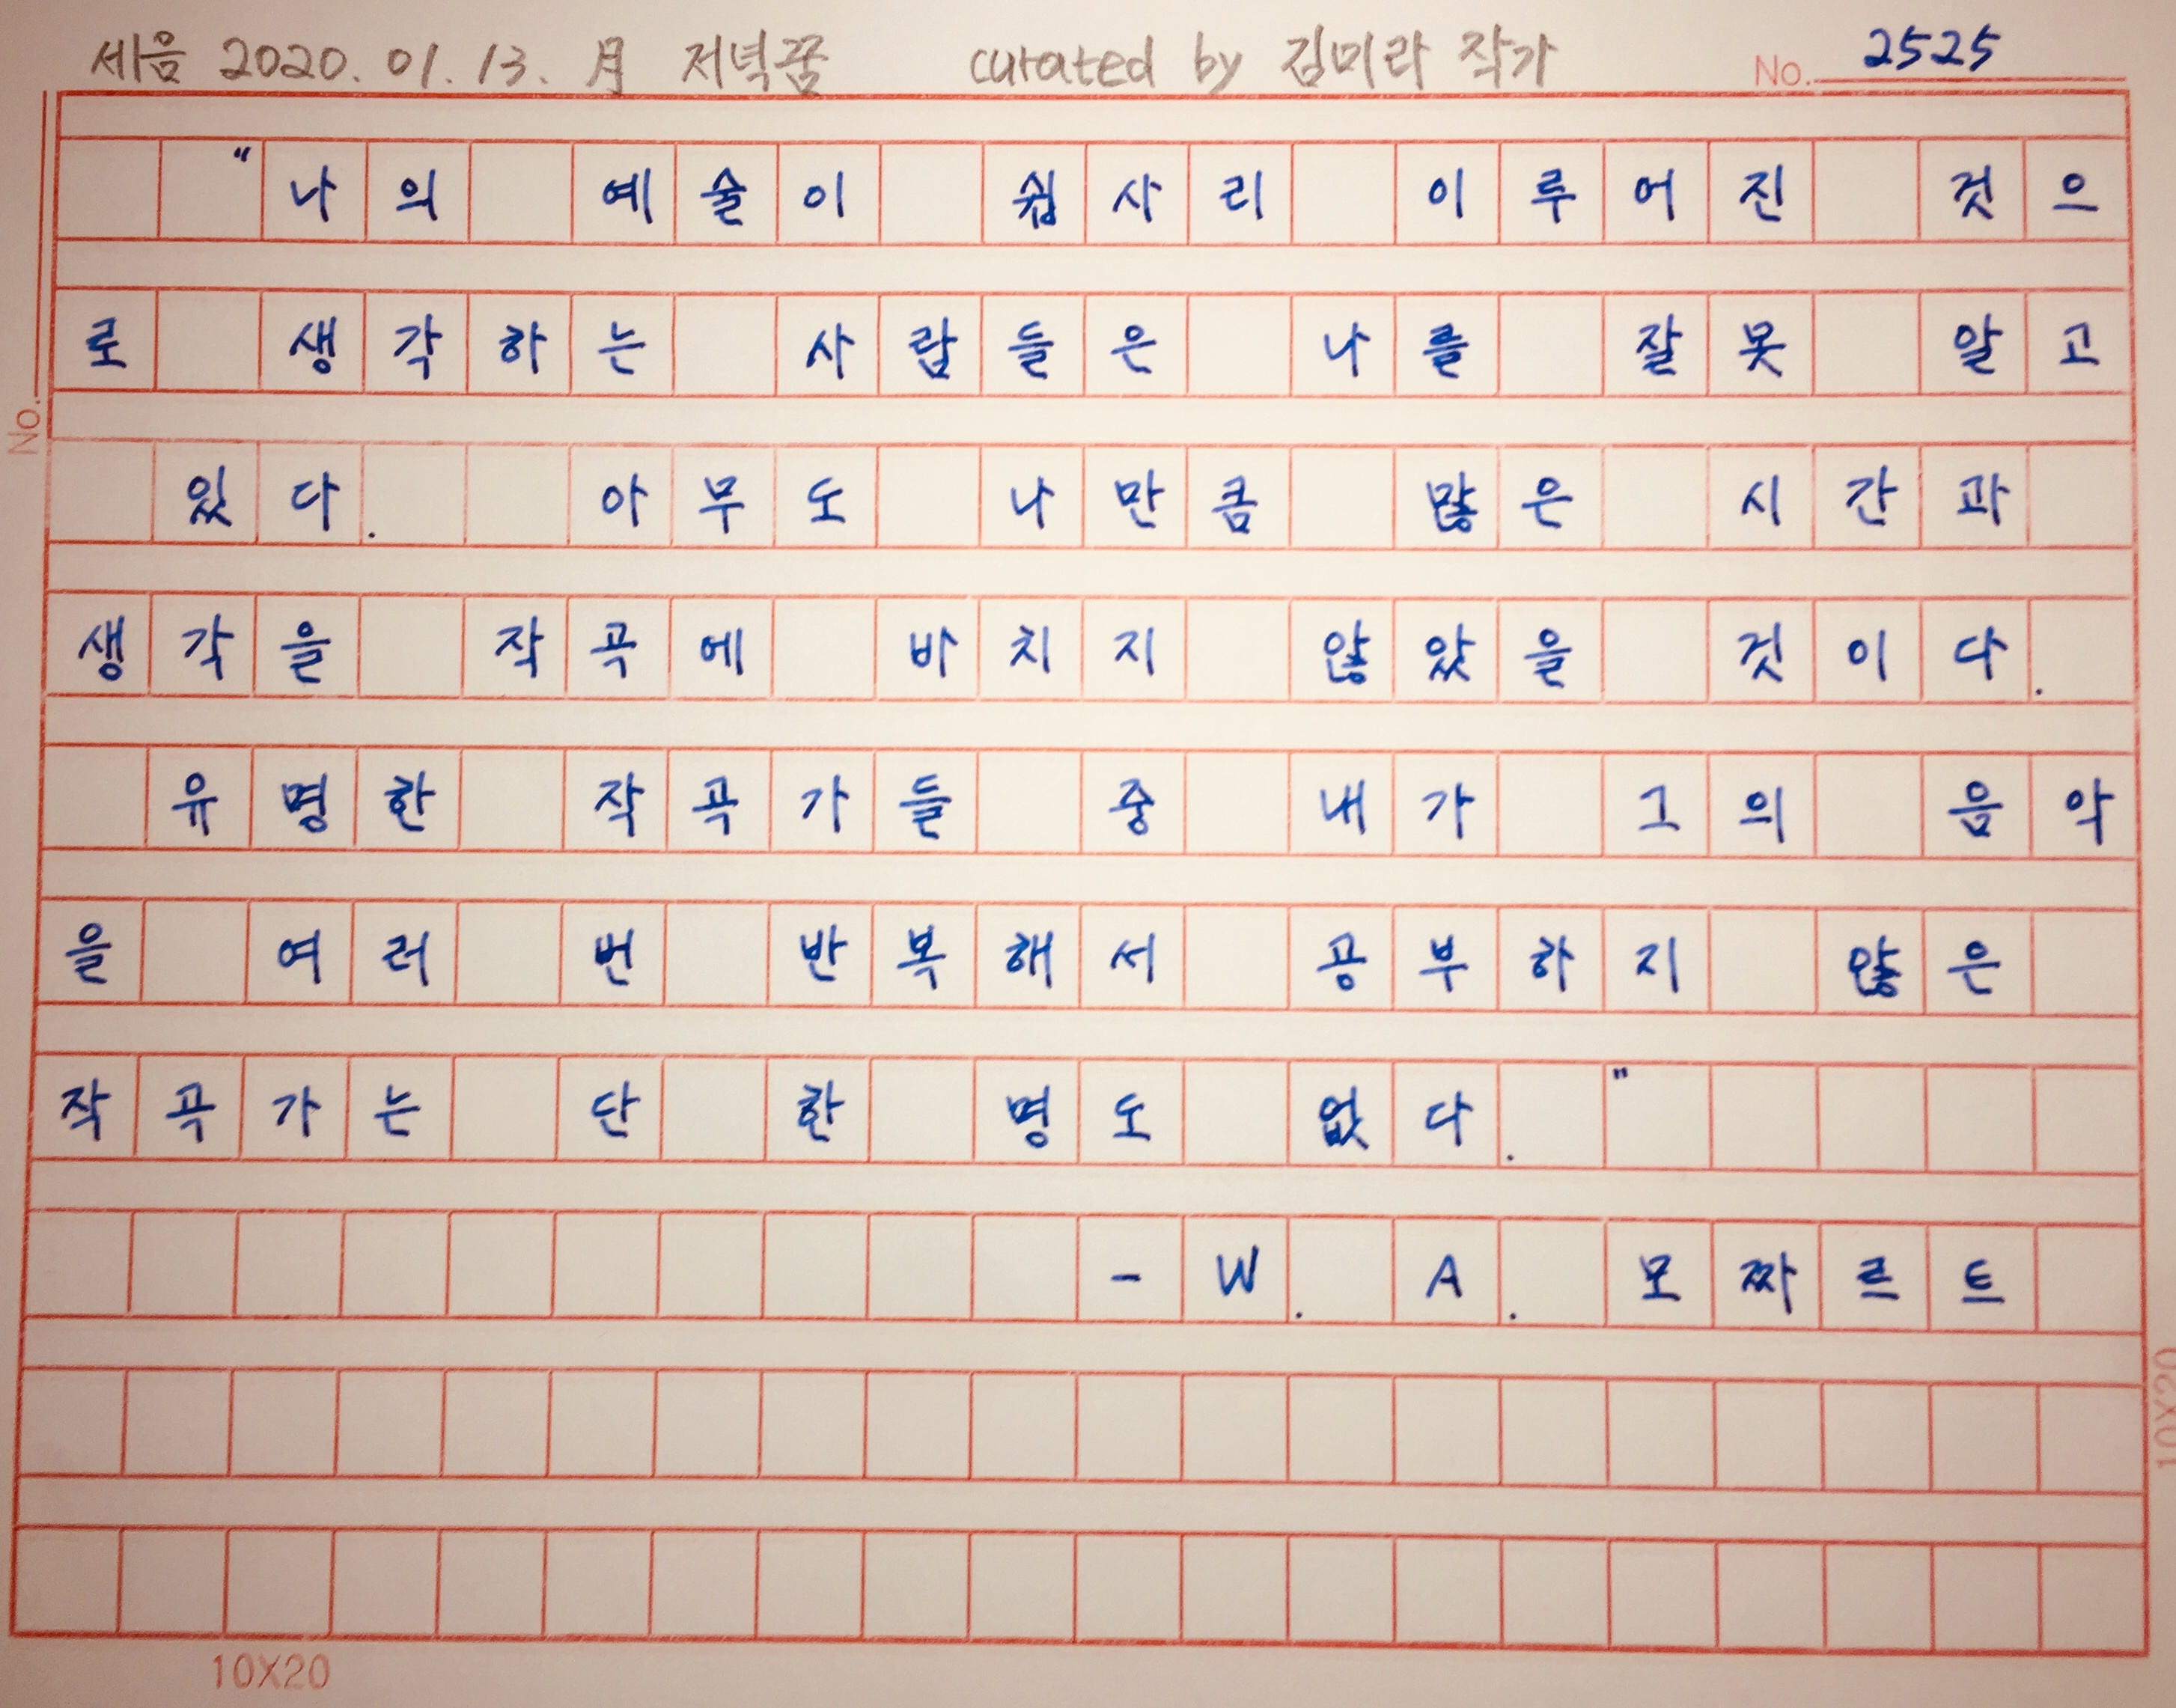 세음 2020. 01. 13. 月 저녁꿈 curated by 김미라 작가 No. 2525
"나의 예술이 쉽사리 이루어진 것으
로 생각하는 사람들은 나를 잘못 알고
있다. 아무도 나만큼 많은 시간과
생각을 작곡에 바치지 않았을 것이다.
유명한 작곡가들 중 내가 그의 음악
을 여러 번 반복해서 공부하지 않은
작곡가는 단 한 명도 없다."
- W. A. 모짜르트
No.
10X20
10X20